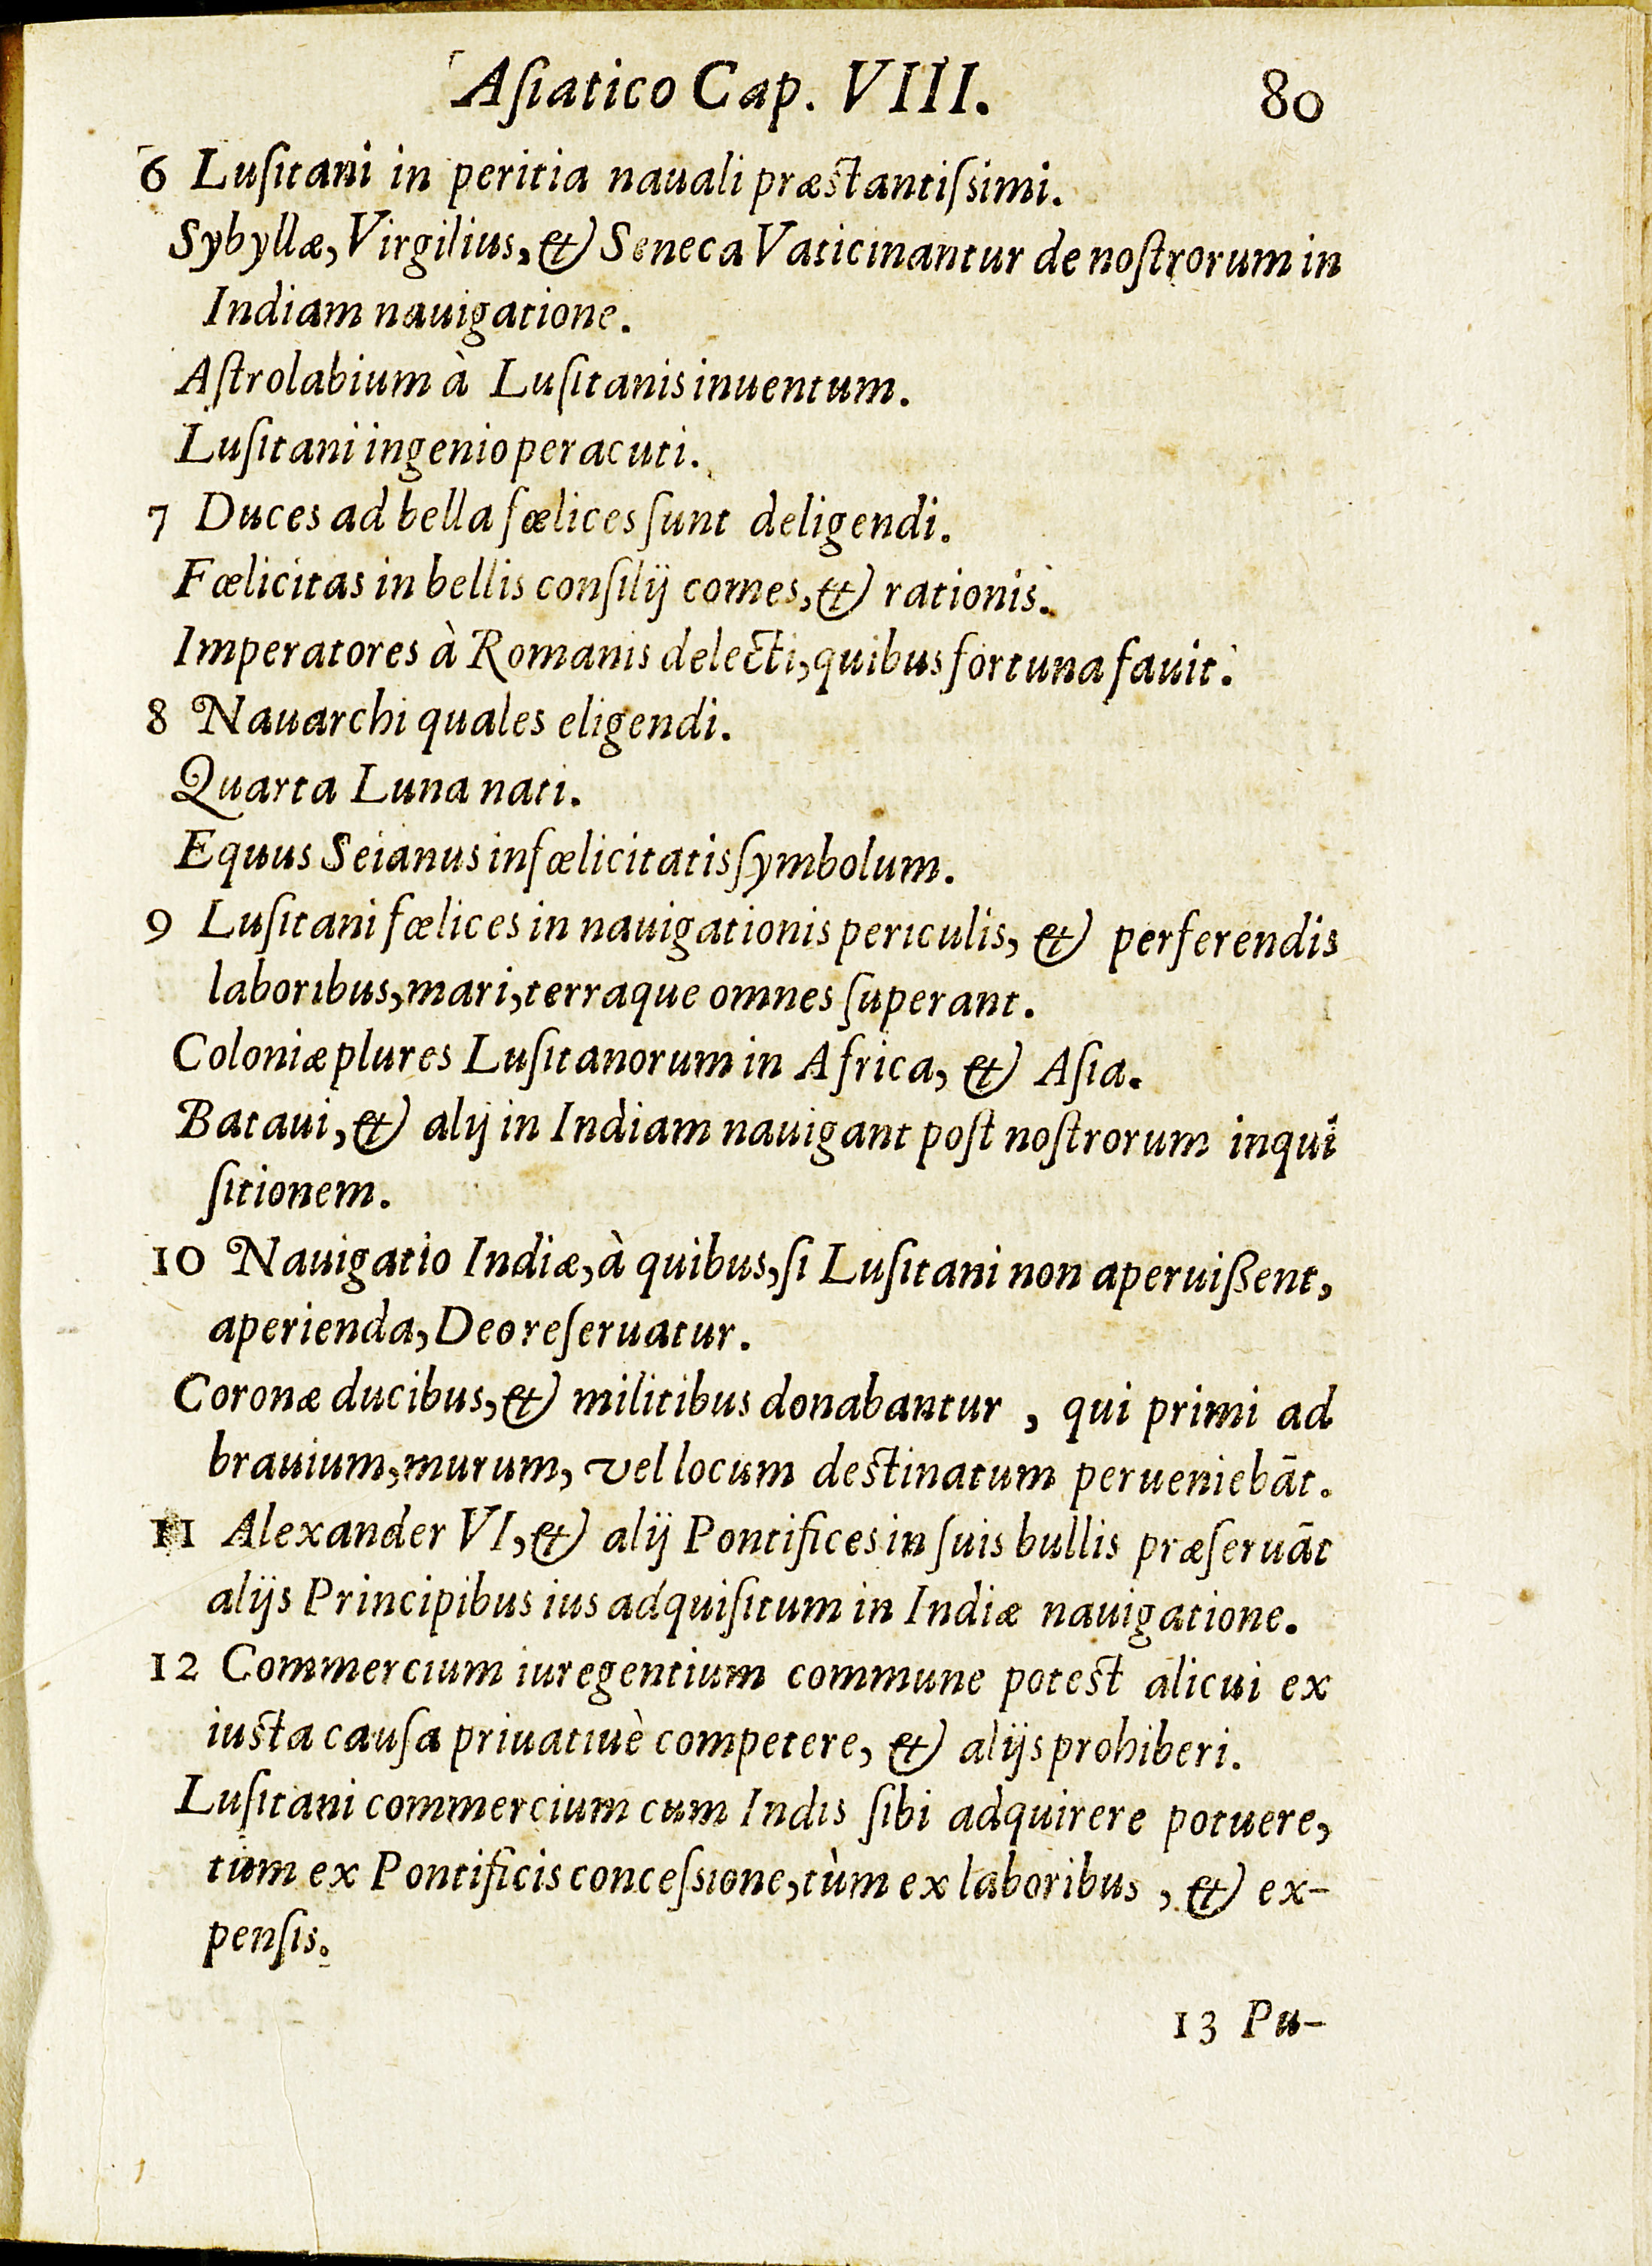 Aſiatico Cap. VIII. 80
6 Luſitani in peritia nauali præstantiſsimi.
Sybyllæ, Virgilius, & Seneca Vaticinantur de noſtrorum in
Indiam nauigatione.
Aſtrolabium à Luſitanis inuentum.
Luſitani ingenio peracuti.
7 Duces ad bella fœlices ſunt deligendi.
Fœlicitas in bellis conſilij comes, & rationis.
Imperatores à Romanis delecti, quibus fortuna fauit.
8 Nauarchi quales eligendi.
Quarta Luna nati.
Equus Seianus infœlicitatis ſymbolum.
9 Luſitani fœlices in nauigationis periculis, & perferendis
laboribus, mari, terraque omnes ſuperant.
Coloniæ plures Luſitanorum in Africa, & Aſia.
Bataui, & alij in Indiam nauigant poſt noſtrorum inqui
ſitionem.
10 Nauigatio Indiæ, à quibus, ſi Luſitani non aperuißent,
aperienda, Deo reſeruatur.
Coronæ ducibus, & militibus donabantur, qui primi ad
brauium, murum, vel locum destinatum perueniebāt.
11 Alexander VI, & alij Pontifices in ſuis bullis præſeruāt
alijs Principibus ius adquiſitum in Indiæ nauigatione.
12 Commercium iure gentium commune potest alicui ex
iusta cauſa priuatiuè competere, & alijs prohiberi.
Luſitani commercium cum Indis ſibi adquirere potuere,
tùm ex Pontificis conceſsione, tùm ex laboribus, & ex-
penſis.
13 Pu-